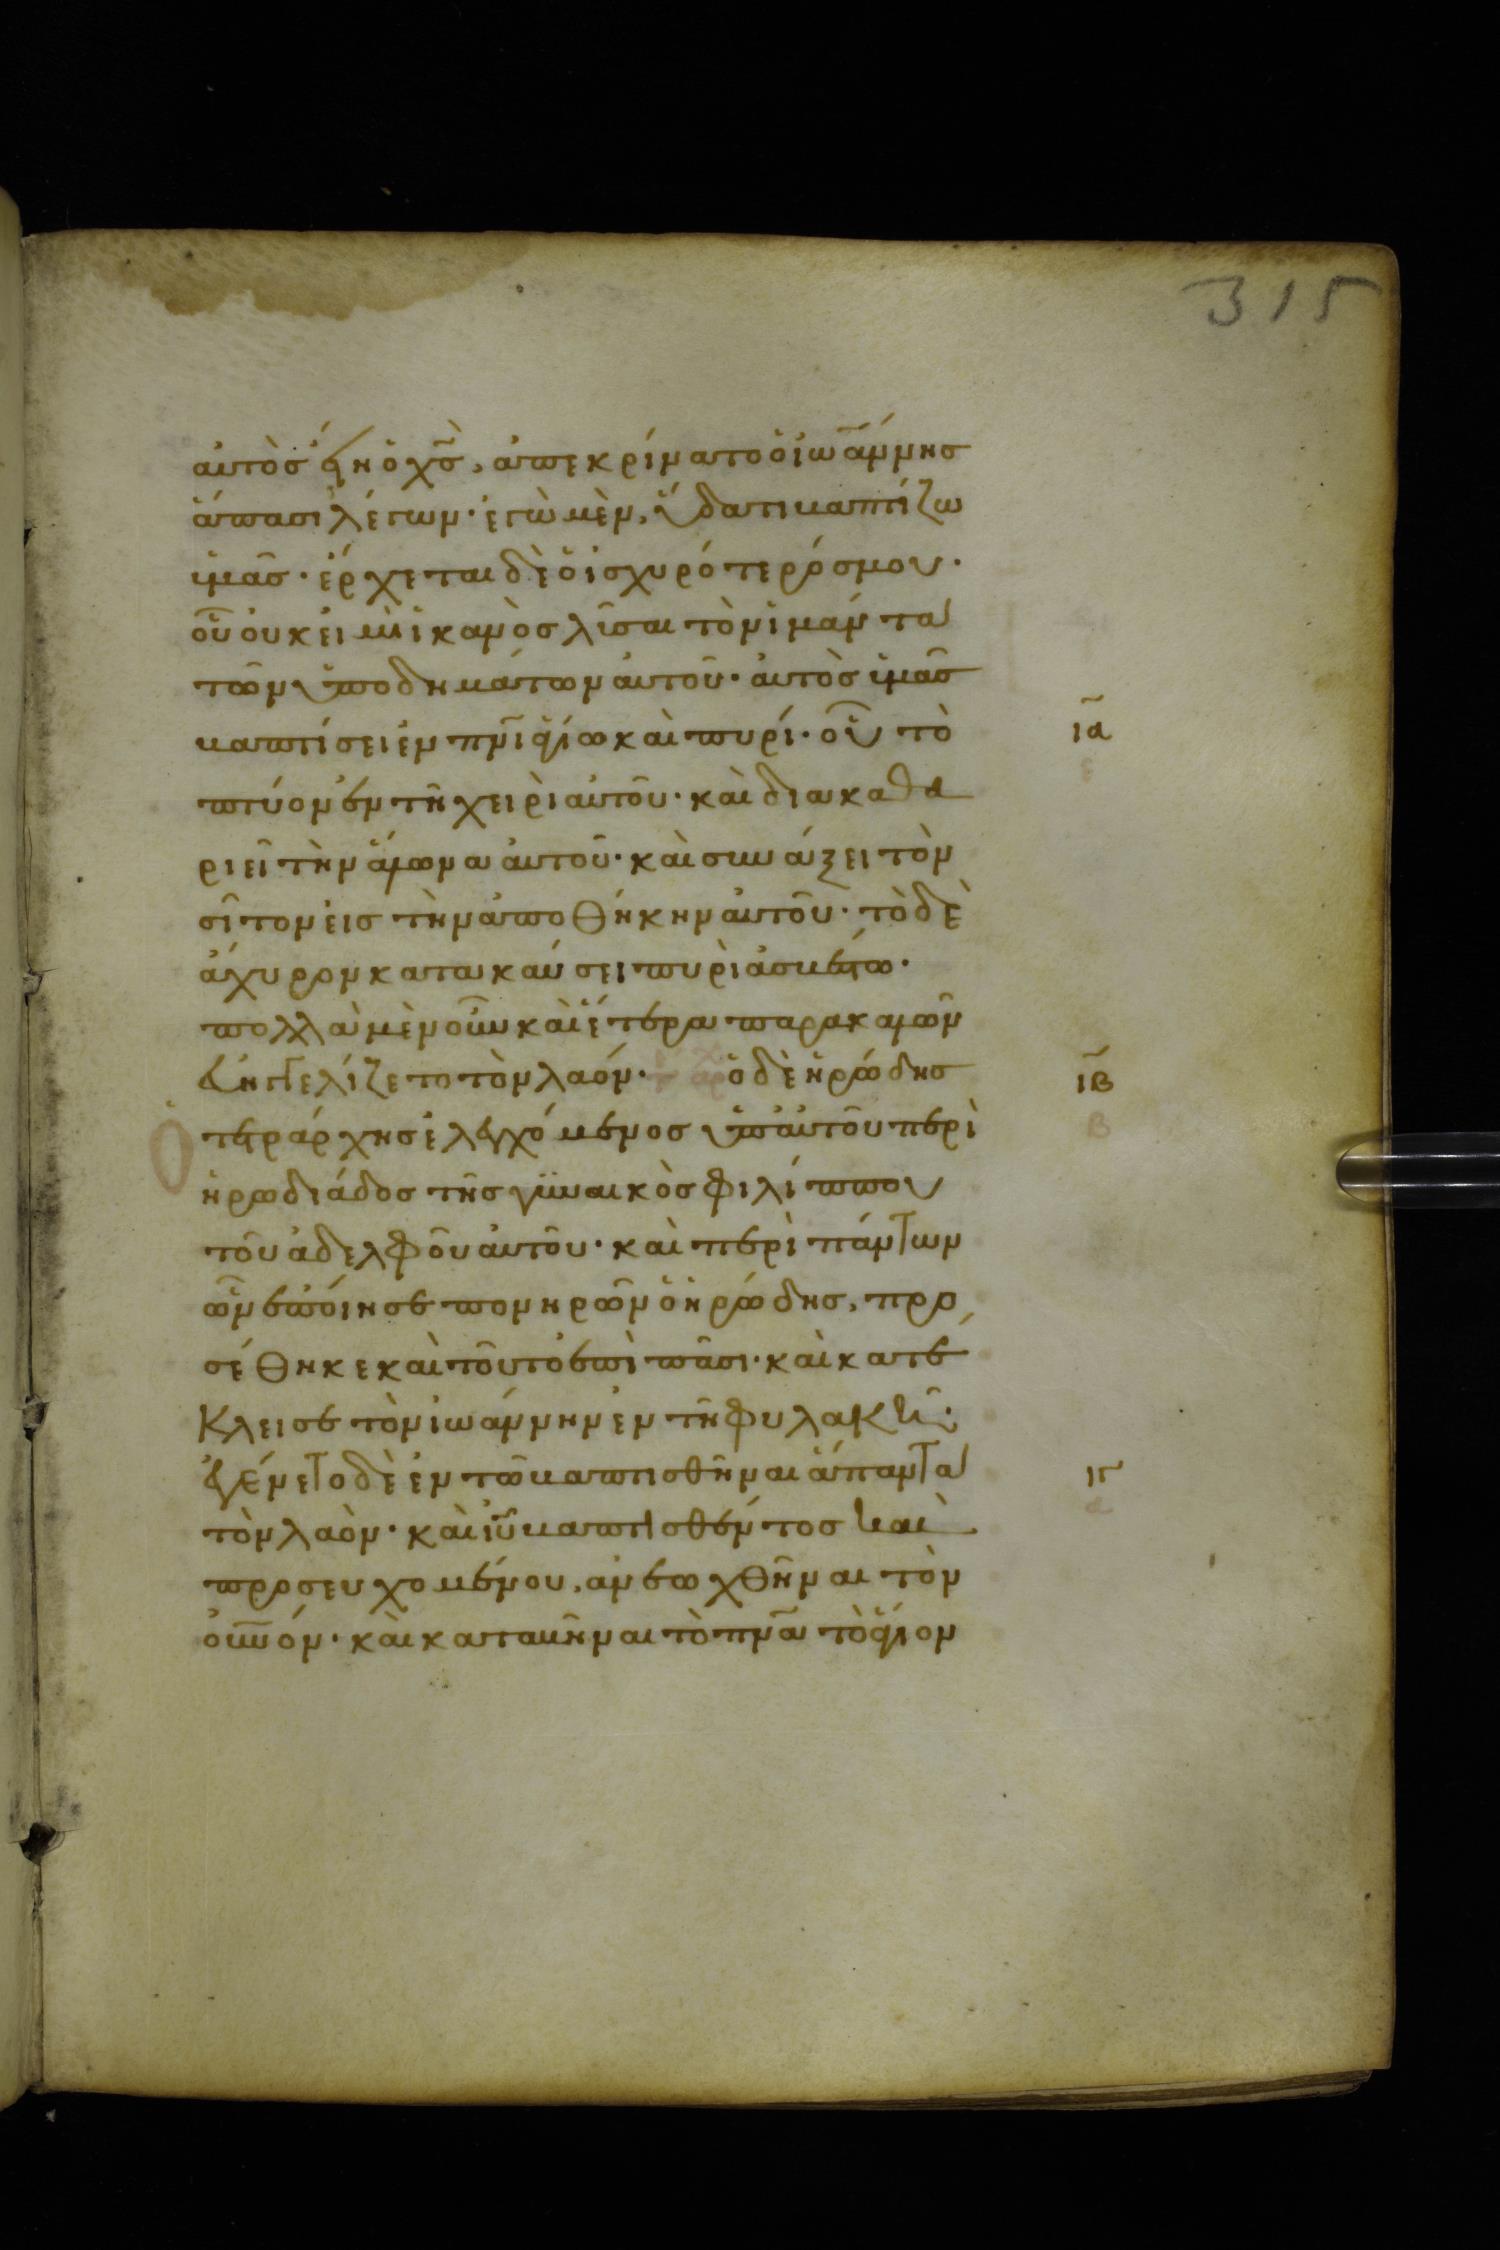 315
αὐτὸς εἴη ὁ χς̄, ἀπεκρίνατο ὁ ἰωάννης
ἅπασι λέγων· ἐγὼ μὲν, ὕδατι βαπτίζω
ὑμᾶς· ἔρχεται δὲ ὁ ἰσχυρότερός μου·
οὗ οὐκ εἰμὶ ἱκανὸς λῦσαι τὸν ἱμάντα
τῶν ὑποδημάτων αὐτοῦ· αὐτὸς ὑμᾶς
βαπτίσει ἐν πνῑ ἁγίω καὶ πυρί· οὗ τὸ
ια
πτύον ἐν τῆ χειρὶ αὐτοῦ· καὶ διακαθα
ε
ριεῖ τὴν ἅλωνα αὐτοῦ· καὶ συνάξει τὸν
σῖτον εἰς τὴν ἀποθήκην αὐτοῦ· τὸ δὲ
ἄχυρον κατακαύσει πυρὶ ἀσβέστω·
πολλὰ μὲν οὖν καὶ ἕτερα παρακαλῶν
εὐηγγελίζετο τὸν λαόν· ὁ δὲ ἡρώδης
ιβ
τετράρχης ἐλεγχόμενος ὑπ αὐτοῦ περὶ
β
ἡρωδιάδος τῆς γυναικὸς φιλίππου
τοῦ ἀδελφοῦ αὐτοῦ· καὶ περὶ πάντων
ὧν ἐποίησε πονηρῶν ὁ ἡρώδης, προ
σέθηκε καὶ τοῦτο ἐπὶ πᾶσι· καὶ κατέ
κλεισε τὸν ἰωάννην ἐν τῆ φυλακῆ·
ἐγένετο δὲ ἐν τῶ βαπτισθῆναι ἅπαντα
ιγ
τὸν λαὸν· καὶ ἰῡ βαπτισθέντος καὶ
α
προσευχομένου, ἀνεωχθῆναι τὸν
οὐνόν· καὶ καταβῆναι τὸ πνᾱ τὸ ἅγιον